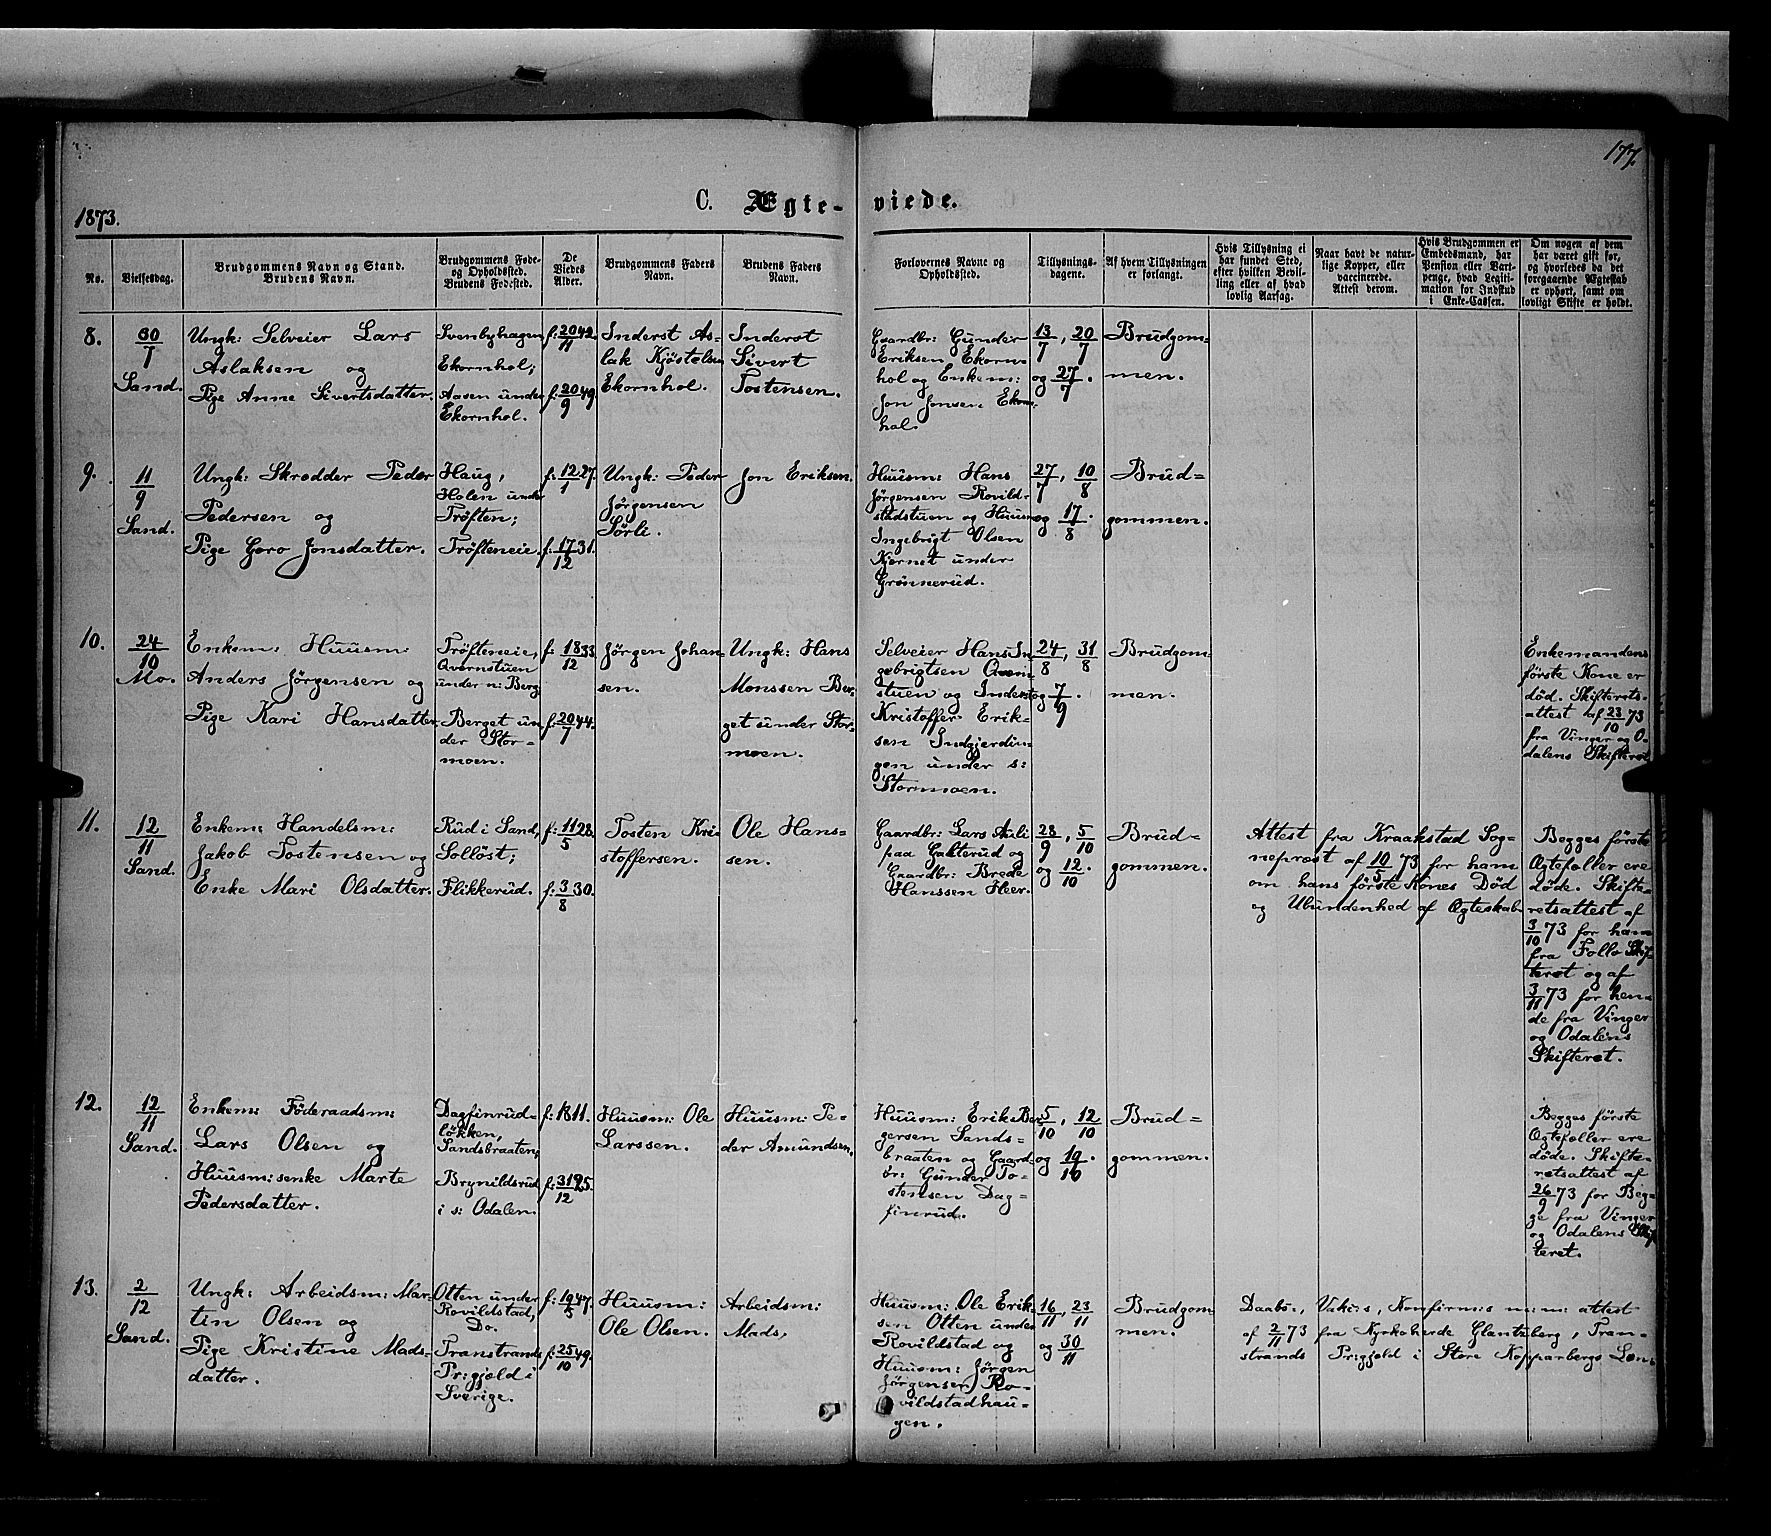 177.
C. Ægte-viede.
1873.
No.
Vielsesdag.
Brudgommens Navn og Stand.
Brudens Navn.
Brudgommens Føde-
og Opholdssted.
Brudens Fødested.
De
Viedes
Alder.
Brudgommens Faders
Navn.
Brudens Faders
Navn.
Forlovernes Navne og
Opholdssted.
Tillysnings-
dagene.
Af hvem Tillysningen
er forlangt.
Hvis Tillysning ei
har fundet Sted,
efter hvilken Bevil-
ling eller af hvad
lovlig Aarsag.
Naar havt de natur-
lige Kopper, eller
vaccinerede.
Attest derom.
Hvis Brudgommen er
Embedsmand, har
Pension eller Vart-
penge, hvad Legiti-
mation for Indskud
i Enke-Cassen.
Om nogen af dem
har været gift før,
og hvorledes da det
foregaaende Ægteskab
er ophørt, samt om
lovligt Skifte er holdt.
8.
30/7
Sand.
Ungk: Selveier Lars
Aslaksen og
Pige Anne Sivertsdatter.
Svenbyhagen
Ekornhol;
Aasen under
Ekornhol.
f: 20/11 42.
f: 20/9 49.
Inderst As-
lak Kjøstelsen
Ekornhol.
Inderst
Sivert
Tostensen.
Gaardbr: Gunder
Eriksen Ekorn-
hol og Enkem:
Jon Jonsen Ekorn-
hol.
13/7, 20/7
og 27/7.
Brudgom-
men.
9.
11/9
Sand.
Ungk: Skrædder Peder
Pedersen og
Pige Goro Jonsdatter.
Haug,
Holen under
Trøften;
Trøfteneie.
f: 12/1 27.
f: 17/12 31.
Ungk: Peder
Jørgensen
Sørli.
Jon Eriksen.
Huusm: Hans
Jørgensen Rovild-
stadstuen og Huusm
Ingebrigt Olsen
Kjernet under
Grønnerud.
27/7, 10/8
og 17/8.
Brud-
gommen.
10.
24/10
Mo.
Enkem: Huusm:
Anders Jørgensen og
Pige Kari Hansdatter
Trøfteneie,
Qvernstuen
under n: Berg
Berget un
der Stor-
moen.
f: 18/12 33.
f: 20/7 44.
Jørgen Johan-
sen.
Ungk: Hans
Monssen Ber-
get under Stor-
moen.
Selveier Hans In-
gebrigtsen Qvern-
stuen og Inderst
Kristoffer Erik-
sen Indgjerdin-
gen under s:
Stormoen.
24/8, 31/8
og 7/9.
Brudgom
men.
Enkemandens
første Kone er
død. Skifterets-
attest af 23/10 73
fra Vinger og O-
dalens Skifteret
11.
12/11
Sand.
Enkem: Handelsm:
Jakob Tostensen og
Enke Mari Olsdatter.
Rud i Sand,
Solløst;
Flikkerud.
f: 11/5 28.
f: 3/8 30.
Tosten Kri-
stoffersen.
Ole Hans-
sen.
Gaardbr: Lars Auli
paa Galterud og
Gaardbr: Brede
Hanssen Heer.
28/9, 5/10
og 12/10.
Brud-
gommen.
Attest fra Kraakstad Sog-
nepræst af 10/5 73 for ham
om hans første Kones Død
og Ubundenhed af Ægteskab
Begges første
Ægtefæller ere
døde. Skifte-
retsattest af
3/10 73 for ham
fra Follo Skif-
teret og af
3/11 73 for hen-
de fra Vinger
og Odalens
Skifteret.
12.
12/11
Sand.
Enkem: Føderaadsm:
Lars Olsen og
Huusm:senke Marte
Pedersdatter.
Dagfinrud-
løkken,
Sandsbraaten;
Brynildsrud
i s: Odalen.
f: 1811.
f: 31/12 25.
Huusm: Ole
Larssen.
Huusm: Pe-
der Amundsen.
Huusm: Erik Ber-
gersen Sands-
braaten og Gaard-
br: Gunder To-
stensen Dag-
finrud.
5/10, 12/10
og 19/10.
Brud-
gommen.
Begges første
Ægtefæller ere
døde. Skifte-
retsattest af
26/9 73 for Beg-
ge fra Vinger
og Odalens Skif
teret.
13.
2/12
Sand.
Ungk: Arbeidsm: Mar-
tin Olsen og
Pige Kristine Mads-
datter.
Otten under
Rovildstad,
Do.
Transtrands
Pr:gjeld i
Sverige.
f: 19/5 47.
f: 25/10 49.
Huusm:
Ole Olsen.
Arbeidsm:
Mads,
Huusm: Ole Erik-
sen Otten under
Rovildstad og
Huusm: Jørgen
Jørgensen Ro-
vildstadhau-
gen.
16/11, 23/11
og 30/11
Brudgom
men.
Daabs:, Vaks:, Konfirm:s m:m: attest
af 2/11 73 fra Kyrkoherde Glantzberg, Tran-
strands Pr:gjeld i Store Kopparbergs Læn.